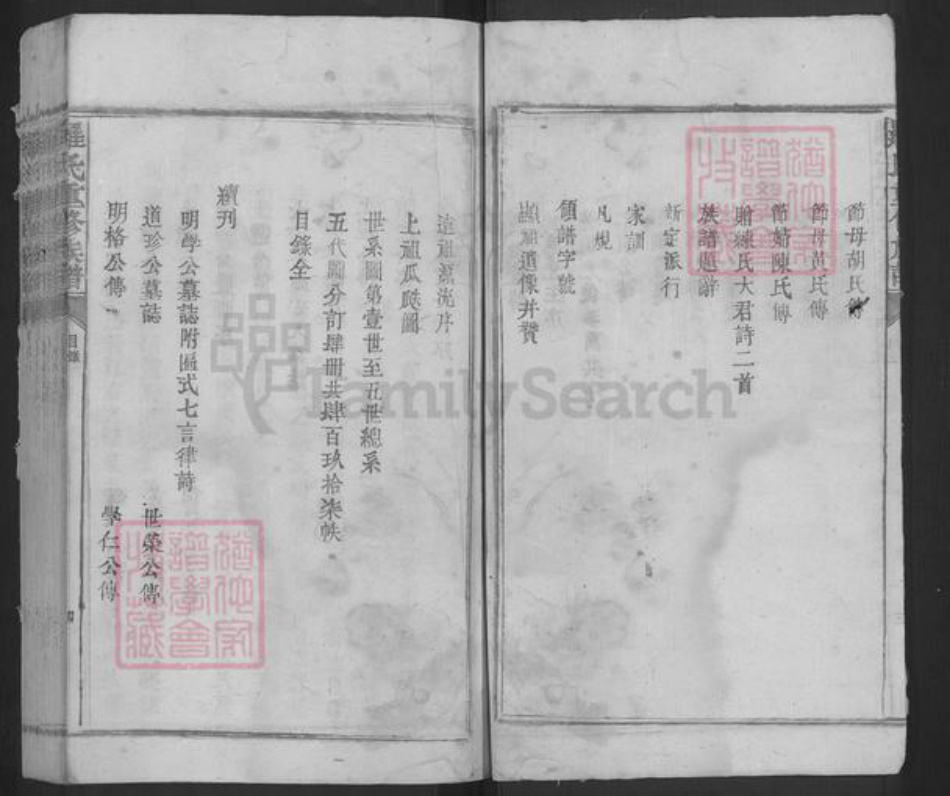 節母胡氏傳
節母黃氏傳
節婦陳氏傳
贈練氏大君詩二首
族譜題辭
新定派行
家訓
凡規
領譜字號
顯祖遺像并贊
遠祖源流序
上祖瓜瓞圖
世系圖第壹世至五世總系
五代圖分訂肆冊共肆百玖拾柒帙
目錄全
續刊
明學公墓誌附匾式七言律詩
道珍公墓誌
世榮公傳
明格公傳
學仁公傳
氏重修族譜
目錄
FamilySearch